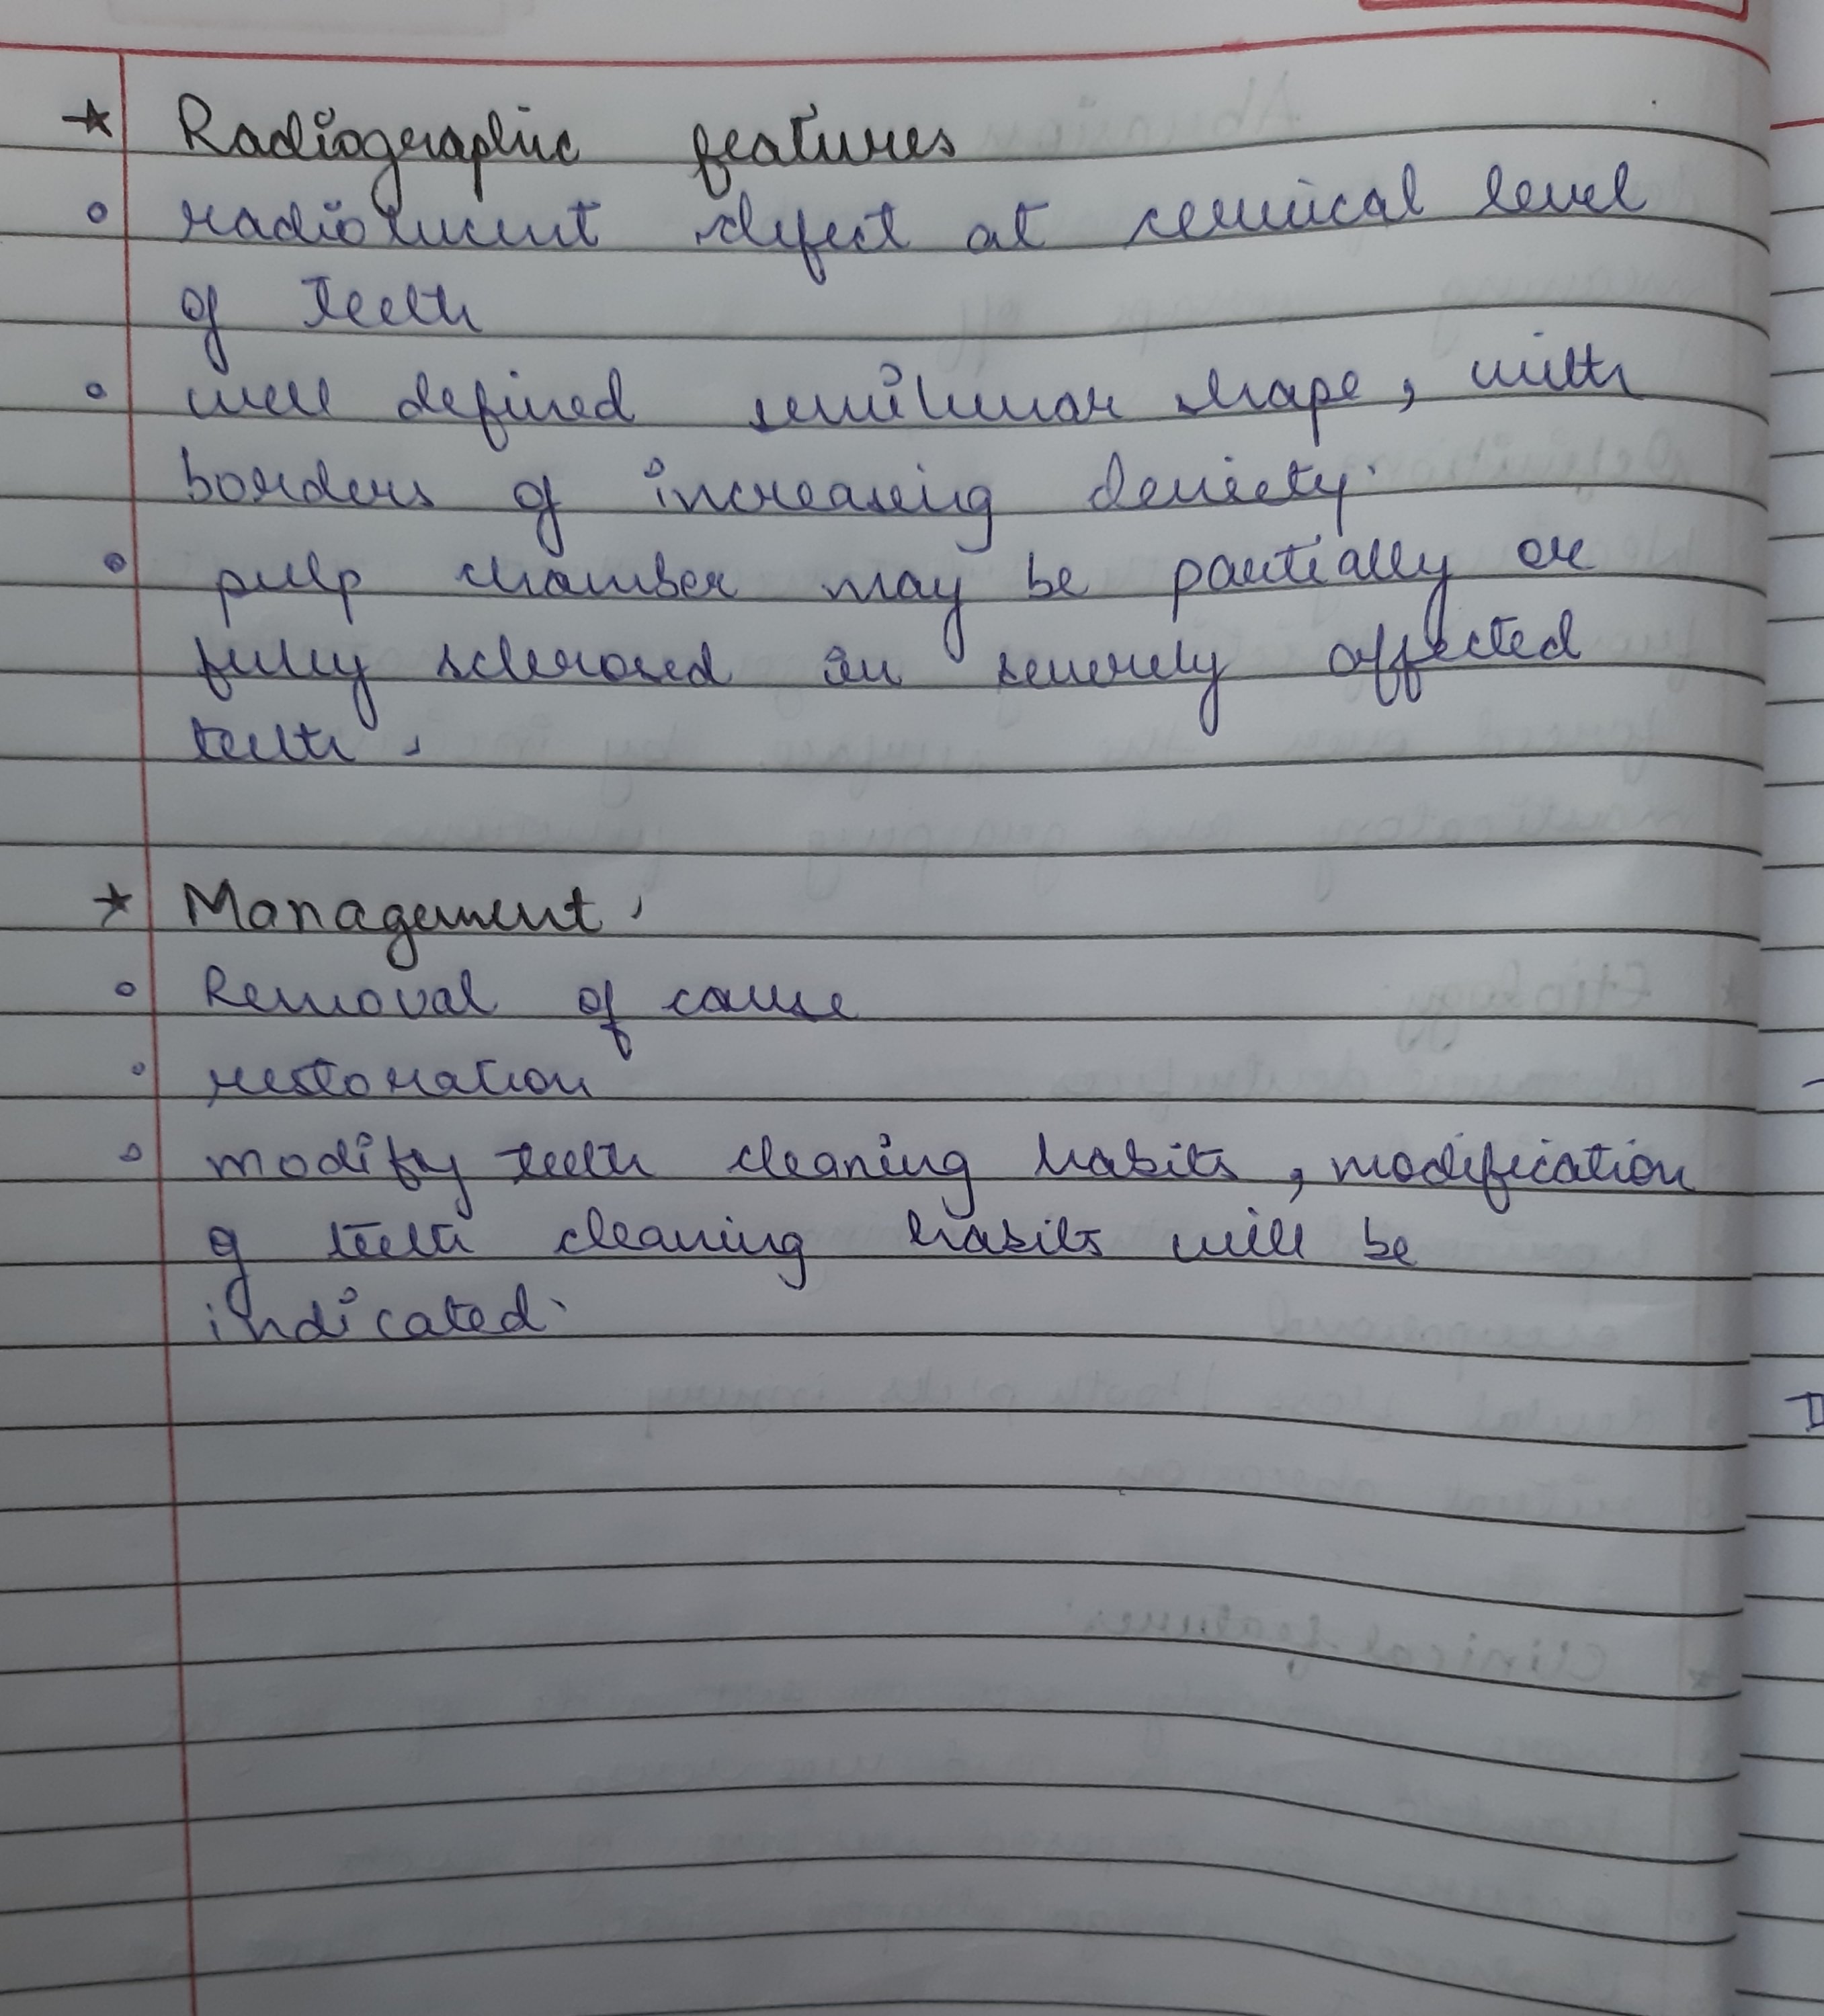 ★ Radiographic features
∘ radiolucent defect at cervical level
of teeth
∘ well defined semilunar shape, with
borders of increasing density.
∘ pulp chamber may be partially or
fully sclerosed in severely affected
teeth.
★ Management.
∘ Removal of cause
∘ restoration
∘ modify teeth cleaning habits, modification
of teeth cleaning habits will be
indicated.